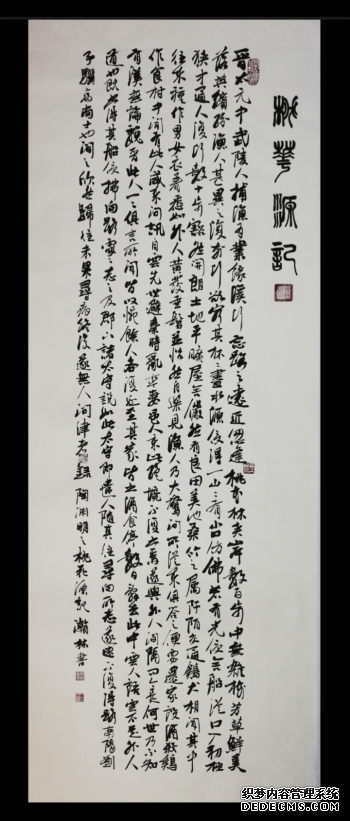 桃華源記
晉太元中武陵人捕漁為業緣溪行忘路之遠近忽逢桃花林夾岸數百步中無雜樹芳草鮮美
落英繽紛漁人甚異之復前行欲窮其林林盡水源便得一山山有小口仿佛若有光便舍船從口入初極
狹才通人復行數十步豁然開朗土地平曠屋舍儼然有良田美池桑竹之屬阡陌交通鷄犬相聞其中
往來種作男女衣著悉如外人黃髮垂髫並怡然自樂見漁人乃大驚問所從來俱答之便要還家設酒殺鷄
作食村中聞有此人咸來問訊自云先世避秦時亂率妻邑人來此絕境不復出焉遂與外人間隔問今是何世乃不知
有漢無論魏晉此人一一具言所聞皆嘆惋餘人各復延至其家皆出酒食停數日辭去此中人語云不足為外人
道也既出得其船便扶向路處處志之及郡下詣太守說如此太守即遣人隨其往尋向所志遂迷不復得路南陽劉
子驥高尚士也聞之欣然歸往未果尋病終後遂無人問津者 錄陶淵明之桃花源記 瀚林書
织梦内容管理系统
DEDECMS.COM